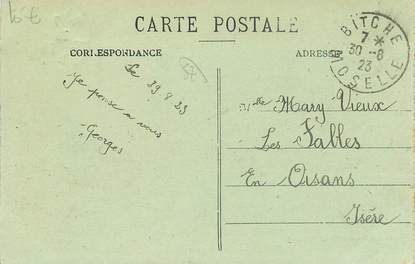 CARTE POSTALE
CORRESPONDANCE
ADRESSE
BITCHE
7 *
30 -8
23
MOSELLE
57
Le 29.8.23
Je pense a vous
Georges
Mlle Mary Vieux
Les Sables
En Oisans
Isère